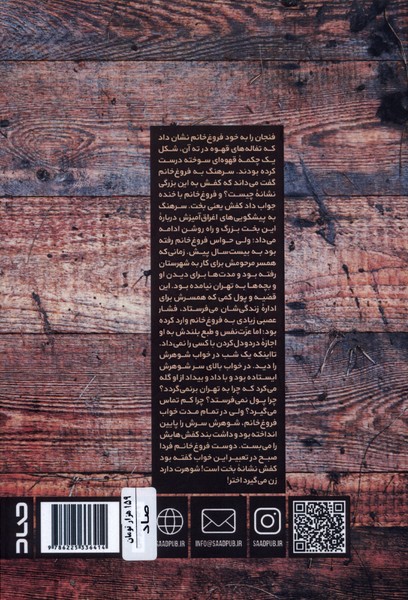 فنجان را به خود فروغ‌خانم نشان داد
که تفاله‌های قهوه در ته آن، شکل
یک چکمهٔ قهوه‌ای سوخته درست
کرده بودند. سرهنگ به فروغ‌خانم
گفت می‌داند که کفش به این بزرگی
نشانهٔ چیست؟ و فروغ‌خانم با خنده
جواب داد کفش یعنی بخت. سرهنگ
به پیشگویی‌های اغراق‌آمیزش دربارهٔ
این بخت بزرگ و راه روشن ادامه
می‌داد؛ ولی حواس فروغ‌خانم رفته
بود به بیست‌سال پیش. زمانی‌که
همسر مرحومش برای کار به شهرستان
رفته بود و مدت‌ها برای دیدن او
و بچه‌ها به تهران نیامده بود. این
قضیه و پول کمی که همسرش برای
ادارهٔ زندگی‌شان می‌فرستاد، فشار
عصبی زیادی به فروغ‌خانم وارد کرده
بود؛ اما عزت‌نفس و طبع بلندش به او
اجازهٔ دردودل‌کردن با کسی را نمی‌داد.
تااینکه یک شب در خواب شوهرش
را دید. در خواب بالای سر شوهرش
ایستاده بود و با داد و بیداد از او گله
می‌کرد که چرا به تهران برنمی‌گردد؟
چرا پول نمی‌فرستد؟ چرا کم تماس
می‌گیرد؟ ولی در تمام مدت خواب
فروغ‌خانم، شوهرش سرش را پایین
انداخته بود و داشت بند کفش‌هایش
را می‌بست. دوست فروغ‌خانم فردا
صبح در تعبیر این خواب گفته بود
کفش نشانهٔ بخت است! شوهرت دارد
زن می‌گیرد اختر!
صاد
9 786221 336414
۱۵۹ هزار تومان
صاد
SAADPUB.IR
INFO@SAADPUB.IR
SAADPUB.IR